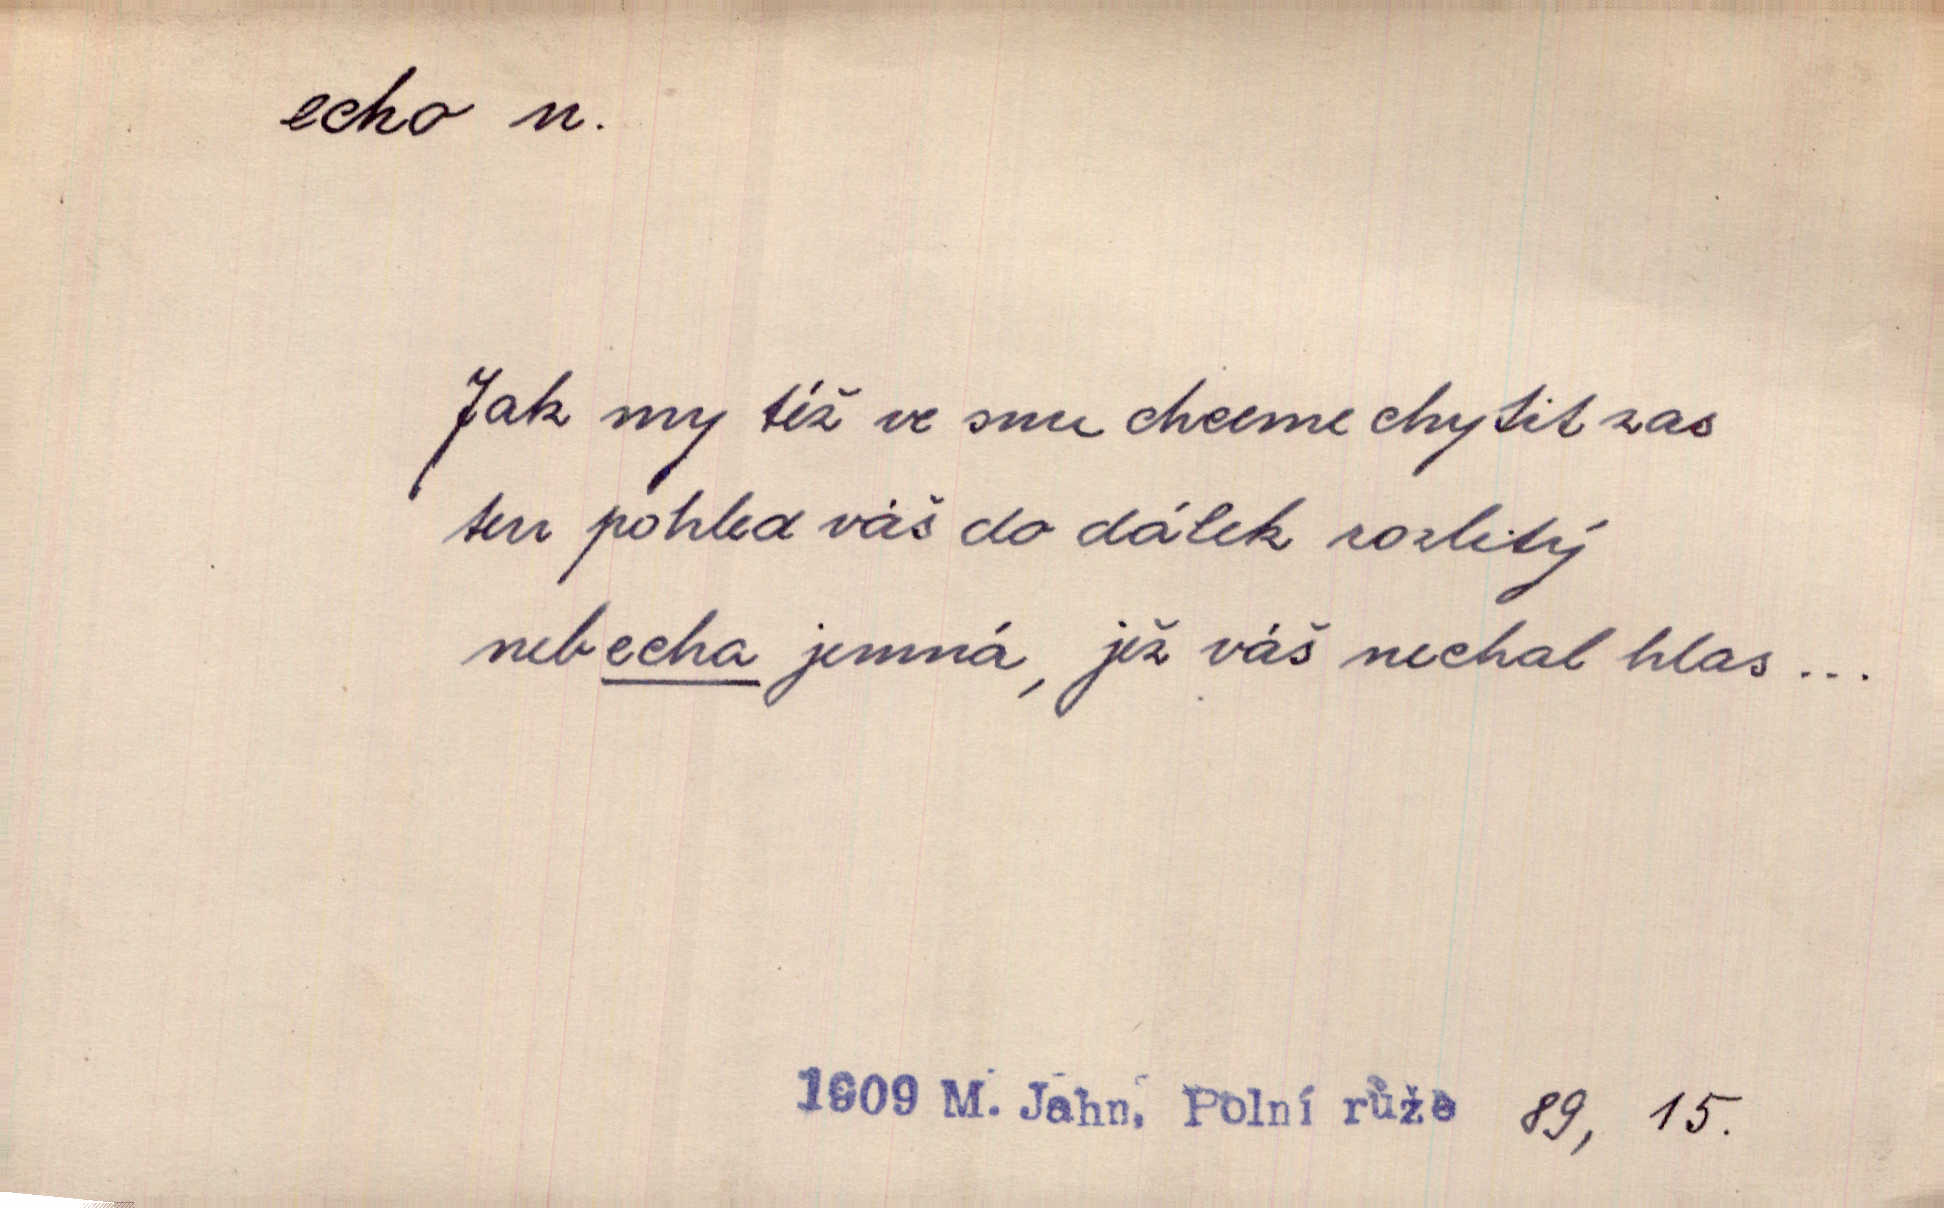 echo n.
Jak my též ve snu chceme chytit zas
ten pohled váš do dálek rozlitý
neb echa jemná, jež váš nechal hlas...
1909 M. Jahn, Polní růže 89, 15.